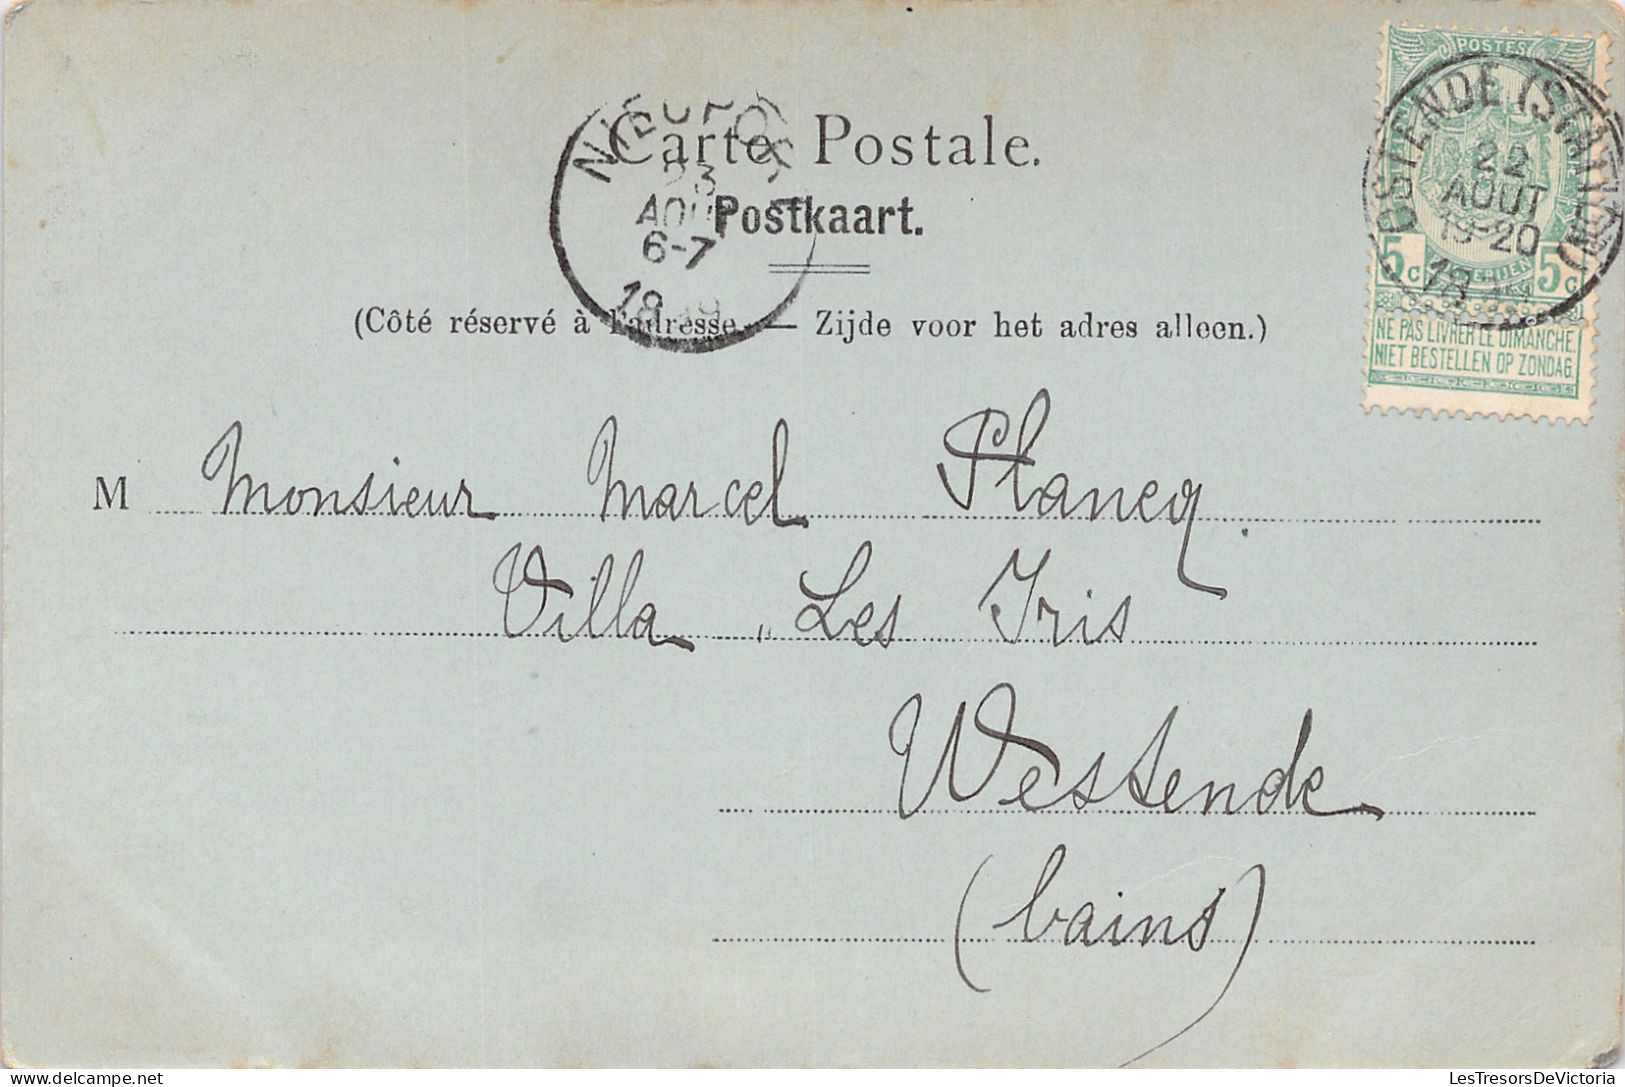 POSTES
OSTENDE (STATION)
22
AOUT
19-20
5c 5c
NE PAS LIVRER LE DIMANCHE.
NIET BESTELLEN OP ZONDAG.
Carte Postale.
Postkaart.
23
AOUT
6-7
(Côté réservé à l'adresse. — Zijde voor het adres alleen.)
M Monsieur Marcel Plancq.
Villa „ Les Iris
Westende
(bains)
LesTresorsDeVictoria